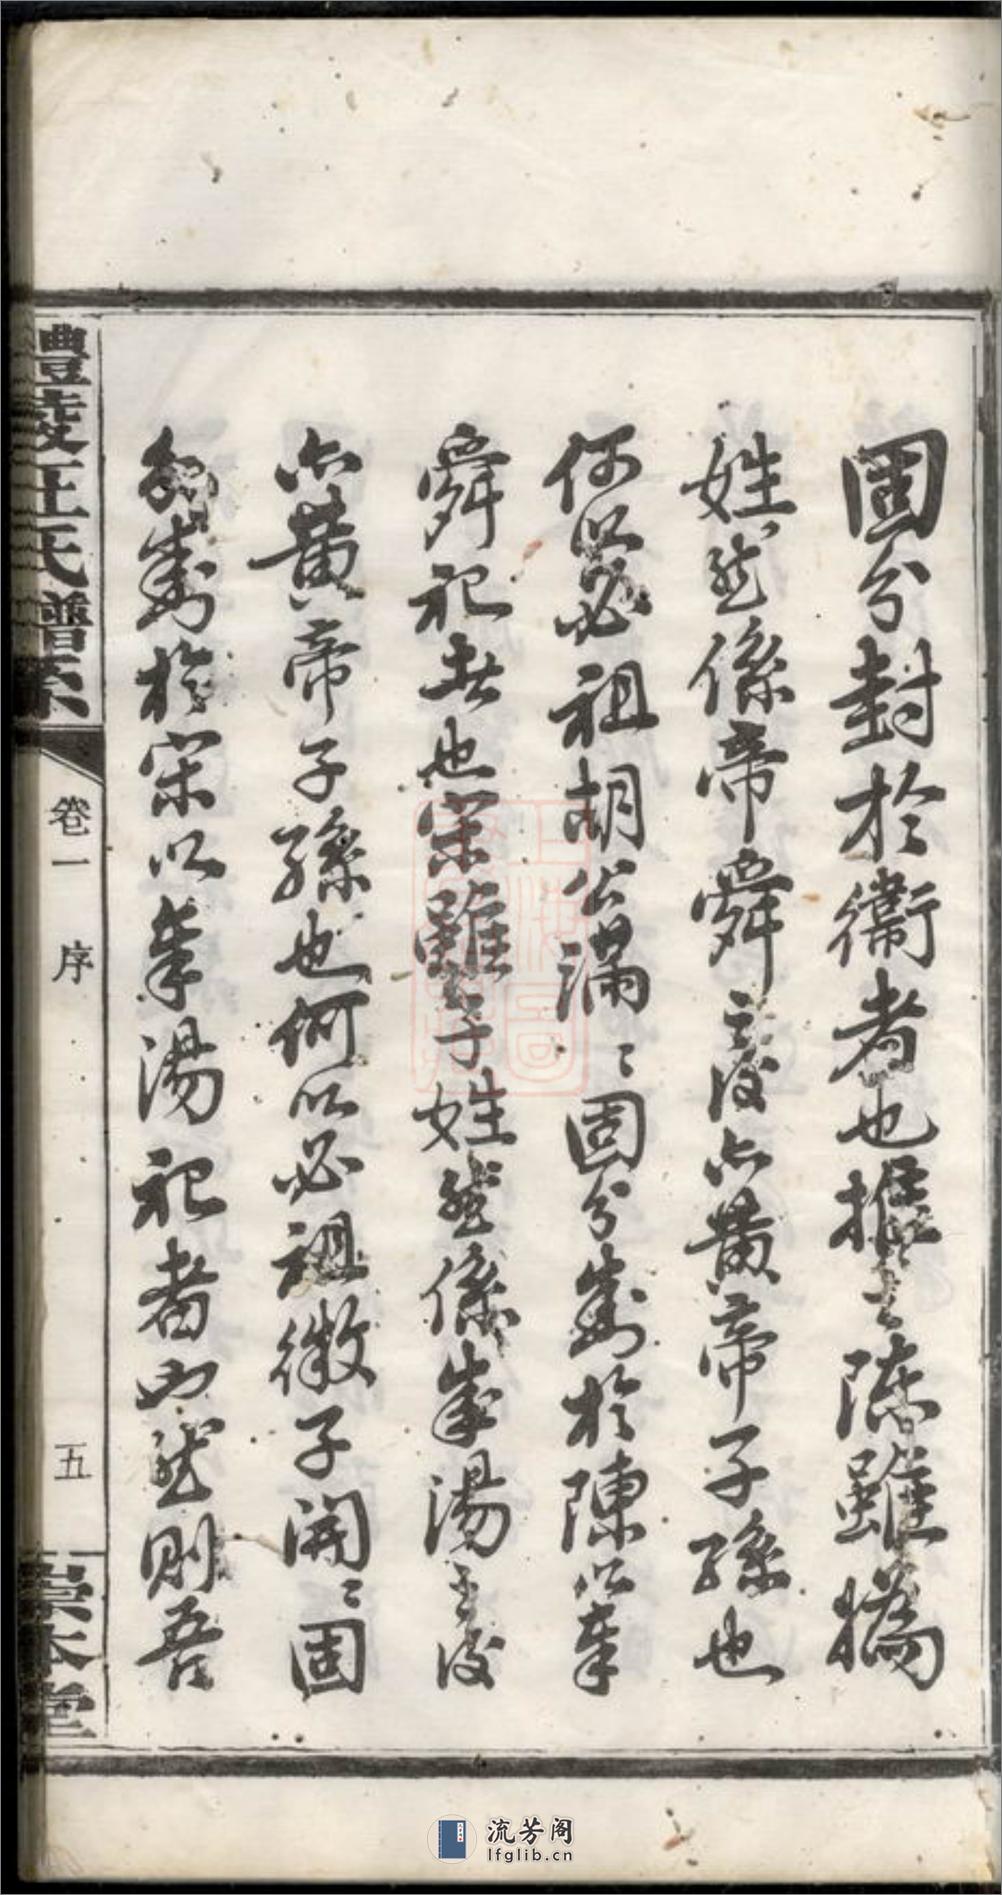 固分封於衞者也推之陳雖媯
姓然係帝舜之後亦黃帝子孫也
何以必祖胡公滿〻固分封於陳以奉
舜祀者也宋雖子姓然係成湯之後
亦黃帝子孫也何以必祖微子開〻固
分封於宋以奉湯祀者也然則吾
醴陵汪氏譜系
卷一
序
五
崇本堂
流芳阁
lfglib.cn